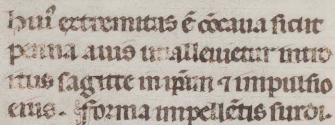 huiꝰ extremitas ē cōcaua sicut
penna auis ut alleuietur intro
itus sagitte in ip̄m ⁊ impulsio
eius. Forma impellētis surdi-